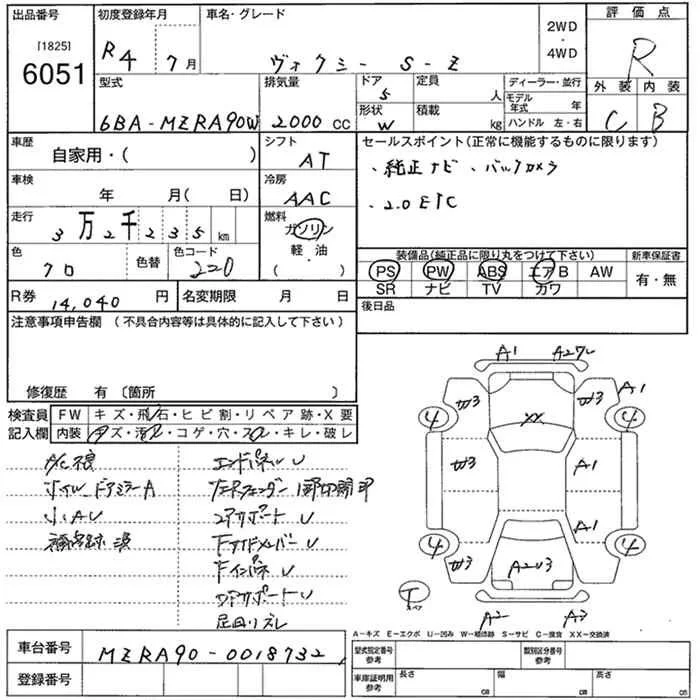 出品番号 初度登録年月 車名・グレード 2WD ・ 4WD 評価点
[1825] 6051 R4年 7月 ヴォクシー S-Z R
型式 排気量 ドア 5 定員 人 ディーラー・並行 外装 内装
6BA-MZRA90W 2000cc 形状 W 積載 kg モデル年式 年 ハンドル 左・右 C B
車歴 自家用・( ) シフト AT セールスポイント(正常に機能するものに限ります)
車検 年 月( 日) 冷房 AAC ・純正ナビ ・バックカメラ
走行 3万2千235km 燃料 ガソリン ・2.0 ETC
軽・油
・
( )
色 クロ 色替 色コード 220 装備品(純正品に限り丸をつけて下さい) 新車保証書
PS PW ABS エアB AW 有・無
SR ナビ TV カワ
R券 14,040円 名変期限 月 日 後日品
注意事項申告欄(不具合内容等は具体的に記入して下さい)
修復歴 有〔箇所 〕
検査員 FW キズ・飛石・ヒビ割・リペア跡・X要
記入欄 内装 キズ・汚れ・コゲ・穴・スレ・キレ・破レ
A/C不良 エンドパネルU
ホイル ドアミラーA
小AU コアサポートU
補修跡 FサイドメンバーU
FインパネU
足回リズレ
A1
A1
XX
4 4
A1
A1
4 4
AU3
A2 A3
A-キズ E-エクボ U-凹み W-補修跡 S-サビ C-腐食 XX-交換済
車台番号 MZRA90-0018732 型式指定番号 参考 類別区分番号 参考
登録番号 車庫証明用 参考 長さ cm 幅 cm 高さ cm